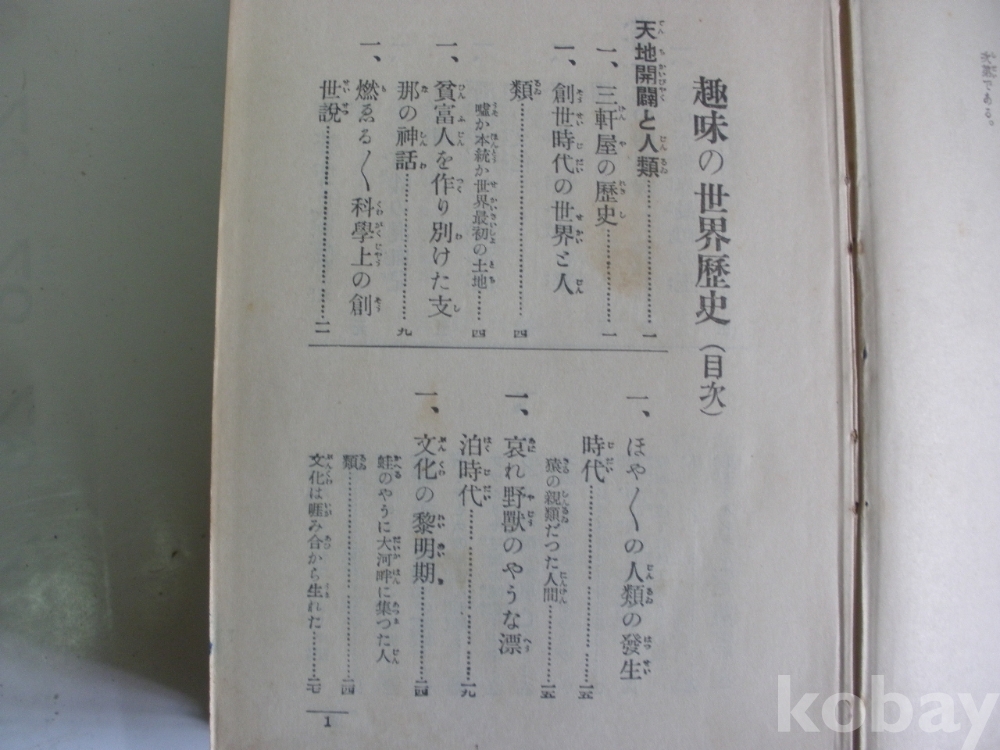 趣味の世界歷史（目次）
天地開闢と人類……一
一、三軒屋の歷史……一
一、創世時代の世界と人
類……四
嘘か本統か世界最初の土地……四
一、貧富人を作り別けた支
那の神話……九
一、燃ゑる〱科學上の創
世說……一一
一、ほや〱の人類の發生
時代……一五
猿の親類だつた人間……一五
一、哀れ野獸のやうな漂
泊時代……一九
一、文化の黎明期……二四
蛙のやうに大河畔に集つた人
類……二四
文化は啀み合から生れた……二七
1
kobay